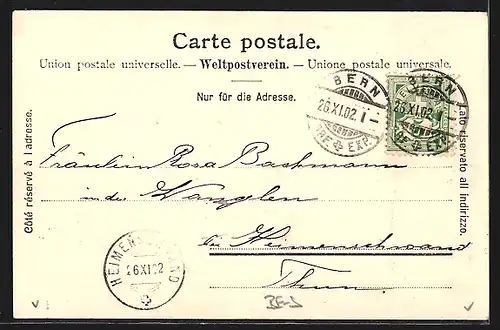 Carte postale.
Union postale universelle. — Weltpostverein. — Unione postale universale.
Nur für die Adresse.
Côté réservé à l'adresse.
Lato riservato all indirizzo.
BERN
26.XI.02. I-
BRF. EXP.
BERN
26.XI.02
BRF. EXP.
Fräulein Rosa Bachmann
in der Wangelen
Heimenschwand
Thun
HEIMENSCHWAND
26 XI 02